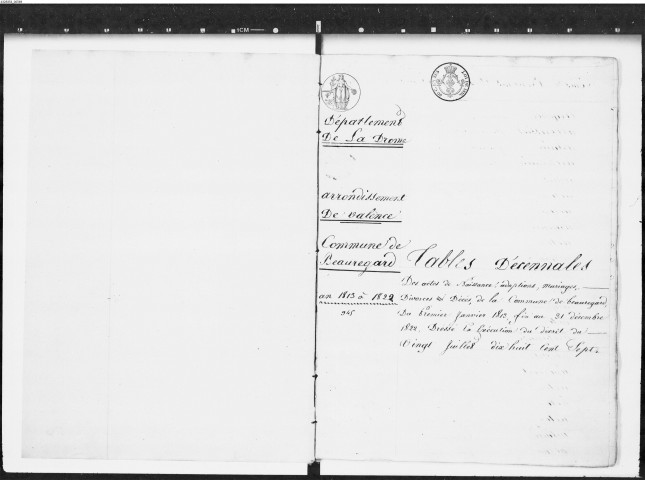 Département
De La Drome
arrondissement
De valence
Commune de
Beauregard
an 1813 à 1822
Tables Décennales
Des actes de Naissance, adoptions, mariages,
Divorces et Décès, de la Commune de beauregard
Du Premier Janvier 1813, fin au 31 décembre
1822. Dressé En Exécution du décret du
Vingt Juillet dix huit Cent Sept
1CM